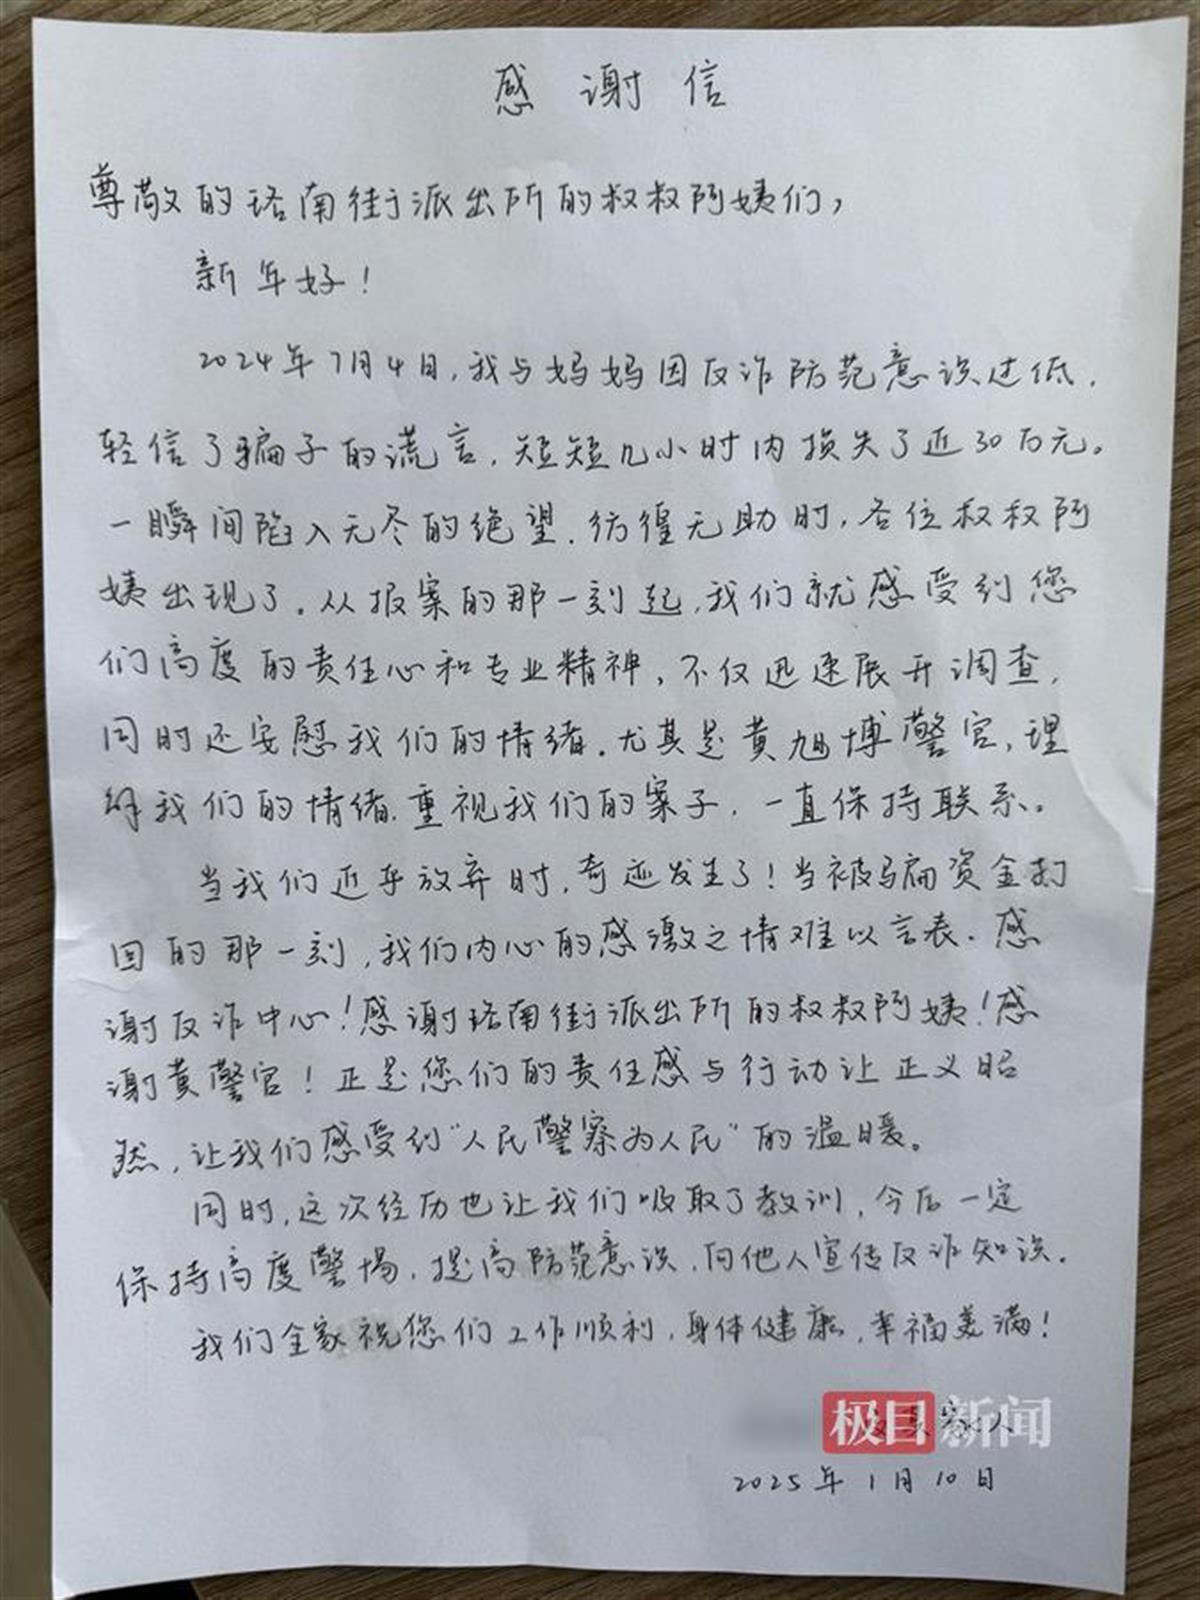 感谢信
尊敬的珞南街派出所的叔叔阿姨们，
新年好！
2024年7月4日，我与妈妈因反诈防范意识过低，
轻信了骗子的谎言，短短几小时内损失了近30万元。
一瞬间陷入无尽的绝望，彷徨无助时，各位叔叔阿
姨出现了。从报案的那一刻起，我们就感受到您
们高度的责任心和专业精神，不仅迅速展开调查，
同时还安慰我们的情绪。尤其是黄旭博警官，理
解我们的情绪，重视我们的案子，一直保持联系。
当我们近乎放弃时，奇迹发生了！当被骗资金打
回的那一刻，我们内心的感激之情难以言表。感
谢反诈中心！感谢珞南街派出所的叔叔阿姨！感
谢黄警官！正是您们的责任感与行动让正义昭
然，让我们感受到“人民警察为人民”的温暖。
同时，这次经历也让我们吸取了教训，今后一定
保持高度警惕，提高防范意识，向他人宣传反诈知识。
我们全家祝您们工作顺利，身体健康，幸福美满！
家人
极目新闻
2025年1月10日